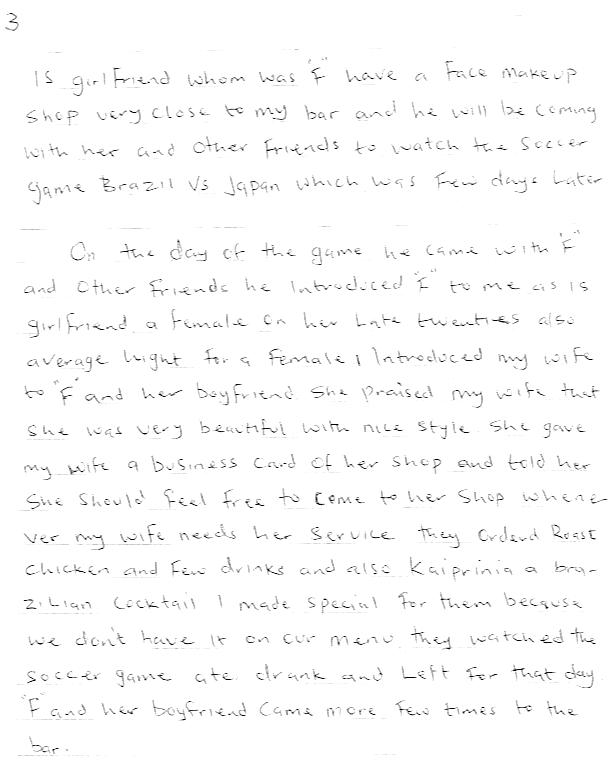 3
Is girlfriend whom was "F" have a Face makeup
shop very close to my bar and he will be coming
with her and other Friends to watch the Soccer
game Brazil Vs Japan which was Few days Later
On the day of the game he came with "F"
and Other Friends he Introduced "F" to me as is
girlfriend a female on her Late twenties also
average hight for a Female I Introduced my wife
to "F" and her boyfriend. She praised my wife that
She was very beautiful with nice Style She gave
my wife a business Card of her Shop and told her
She Should feel free to Come to her Shop whene-
ver my wife needs her Service they Orderd Roast
Chicken and Few drinks and also Kaiprinia a bra-
zilian Cocktail I made special For them because
we don't have it on our menu they watched the
Soccer game ate drank and Left For that day.
"F" and her boyfriend Came more Few times to the
bar.